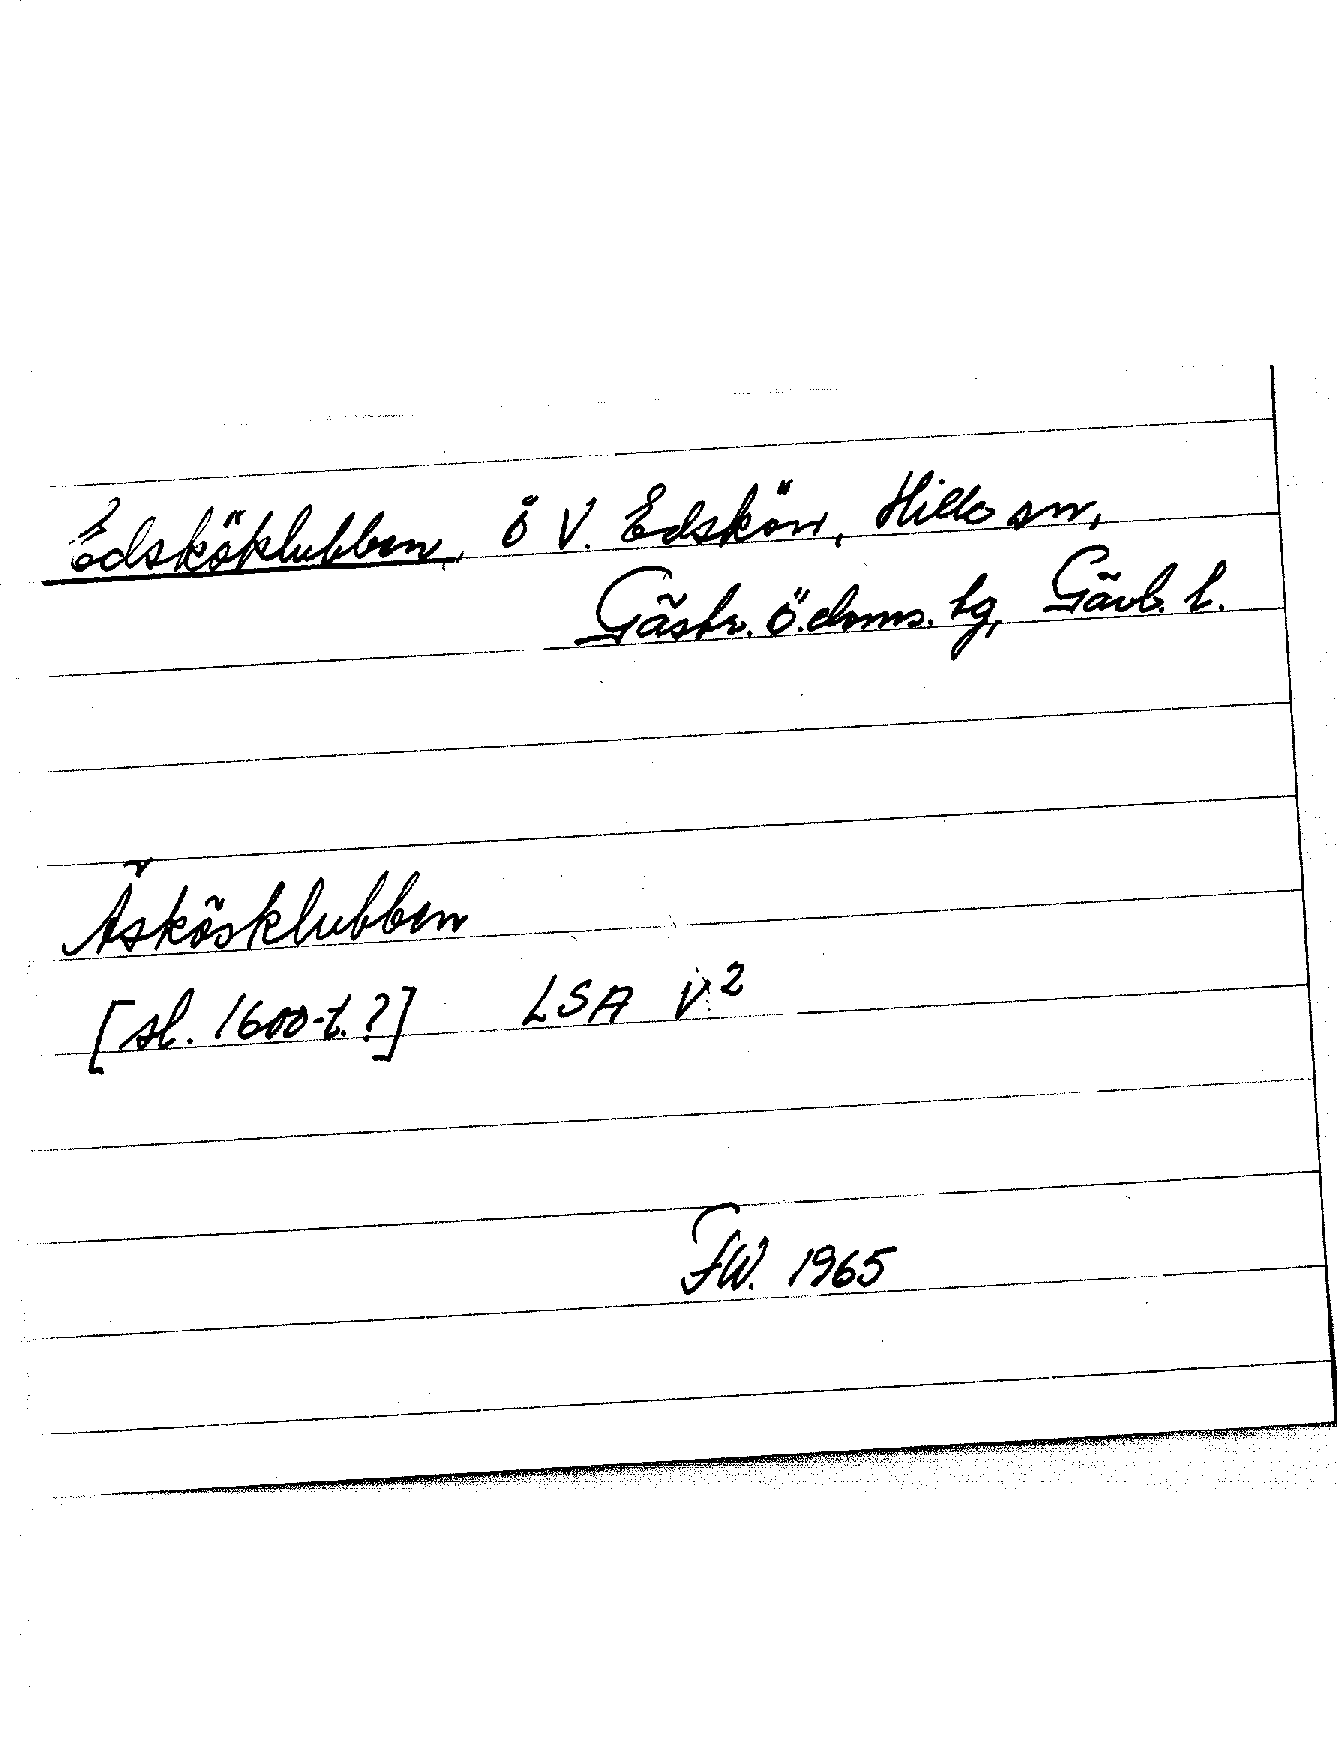 Edsköklubben, ö V. Edskön, Hille sn,
Gästr. ö. dms. lg, Gävb. l.
Äskösklubben
[sl. 1600-t.?] LSA V.2
FW. 1965